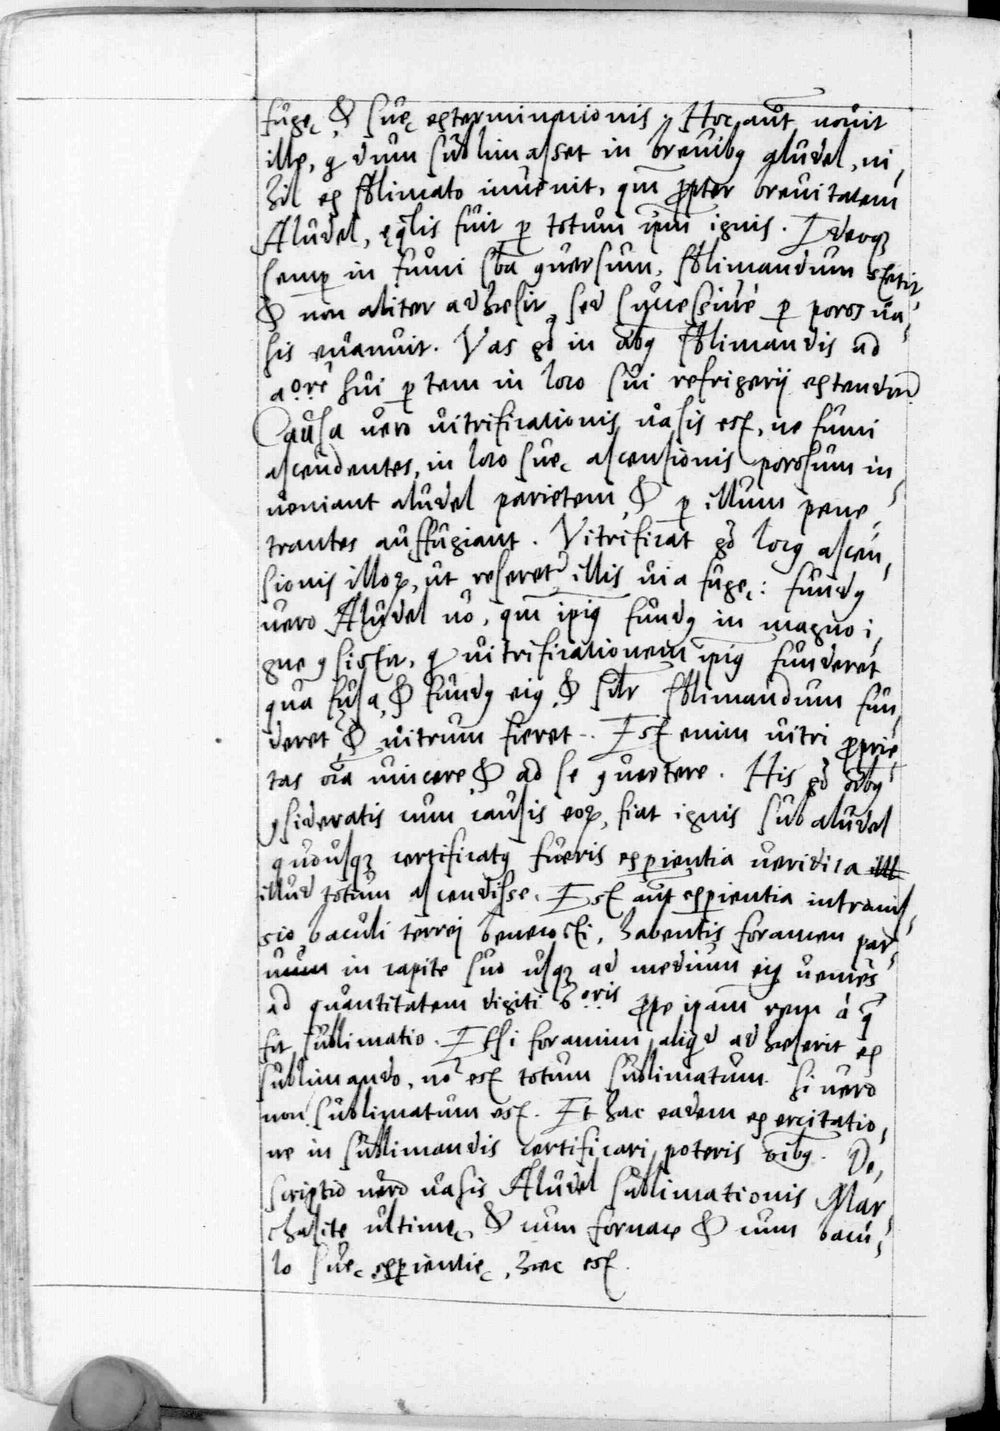 fugę & suę exterminacionis. Hoc aūt novit
ille, q̄ dum sublimasset in brevibꝰ aludel, ni,
hil ex sblimato invenit, qm̄ ꝓpter brevitatem
Aludel, ęq̄lis fuit ꝑ totum ipm̄ ignis. Ideoqꝫ
semꝑ in fumi sb̄a ꝯversum, sblimandum stetit
& non aliter adhesit, sed successivè ꝑ poros va,
sis evanuit. Vas gͦ in oībꝰ sblimandis ad
aoͦrē sui ꝑtem in loco sui refrigerij extendm̄
Causa vero vitrificationis vasis est, ne fumi
ascendentes, in loco suę ascensionis porosum in,
veniant aludel parietem, & ꝑ illum pene,
trantes auffugiant. Vitrificat gͦ locꝰ ascen,
sionis illoꝝ, ut reseret illis via fugę: fundꝰ
vero Aludel nō, qm̄ ipiꝰ fundꝰ in magno i,
gne ꝯsistit, q̄ vitrificationem ipiꝰ funderet
qua fusa, & fundꝰ eiꝰ, & sīlr sblimandum fun,
deret & vitrum fieret. Est enim vitri ꝓprie,
tas oīa vincere & ad se ꝯvertere. His gͦ oībꝰ
ꝯsideratis cum causis eoꝝ, fiat ignis sub aludel
quousqꝫ certificatꝰ fueris experientia veridica
illud totum ascendisse. Est aūt experientia intromis,
sio baculi terrei benecocti, habentis foramen par,
vum in capite suo usqꝫ ad medium eiꝰ veniēs
ad quantitatem digiti ꝓpe ipam̄ rem à q̄
fit sublimatio. Et si foramini aliqͥd adheserit ex
sublimando, nō est totum sublimatum. si vero
non sublimatum est. Et hac eadem exercitatio,
ne in sublimandis certificari poteris oībꝰ. De,
scriptio vero vasis Aludel sublimationis Mar,
chasitę ultimę, & cum fornace & cum bacu,
lo suę experientię, hęc est.